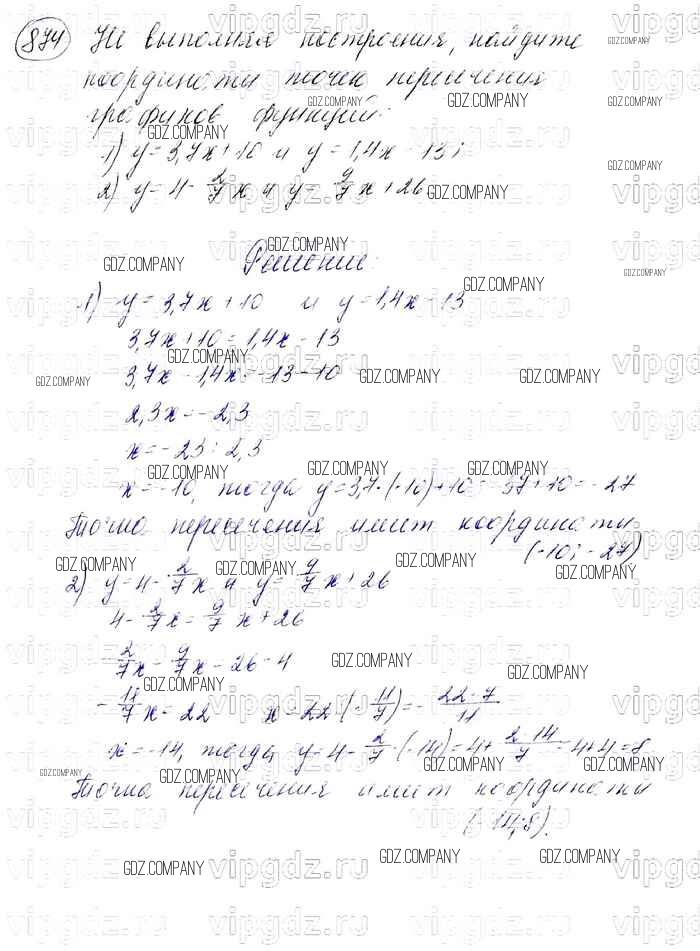 874 Не выполняя построения, найдите
координаты точек пересечения
графиков функций:
1) y = 3,7x + 10 и y = 1,4x - 13;
2) y = 4 - 2/7 x и y = 9/7 x + 26
Решение.
1) y = 3,7x + 10 и y = 1,4x - 13
3,7x + 10 = 1,4x - 13
3,7x - 1,4x = -13 - 10
2,3x = -2,3
x = -23 : 2,3
x = -10, тогда y = 3,7 · (-10) + 10 = -37 + 10 = -27
Точка пересечения имеет координаты
(-10; -27)
2) y = 4 - 2/7 x и y = 9/7 x + 26
4 - 2/7 x = 9/7 x + 26
- 2/7 x - 9/7 x = 26 - 4
- 11/7 x = 22 x = 22 : (- 11/7) = - 22·7/11
x = -14, тогда y = 4 - 2/7 · (-14) = 4 + 2·14/7 = 4 + 4 = 8
Точка пересечения имеет координаты
(-14; 8).
vipgdz.ru
GDZ.COMPANY